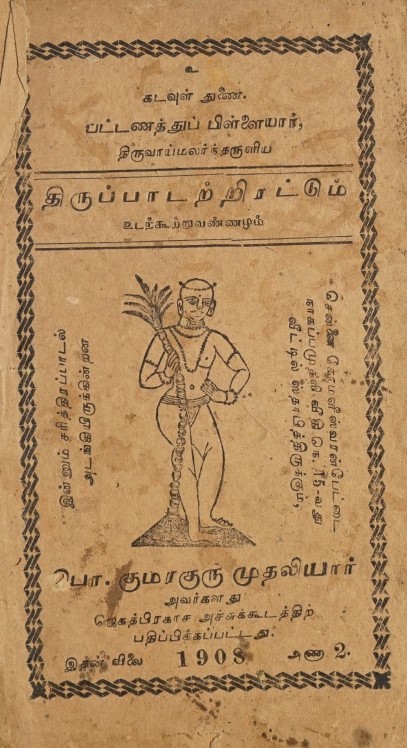 உ
கடவுள் துணை.
பட்டணத்துப் பிள்ளையார்,
திருவாய்மலர்ந்தருளிய
திருப்பாடற்றிரட்டும்
உடற்கூற்றுவண்ணமும்
இன்னும் சரித்திரப்பாடல்
அடங்கியிருக்கின்றன
சென்னை
வீதி 15-வது
வீட்டில்
பொ. குமரகுரு முதலியார்
அவர்களது
ஜெகத்பிரகாச அச்சுக்கூடத்திற்
பதிப்பிக்கப்பட்டது.
இதன் விலை 1908 அணா 2.